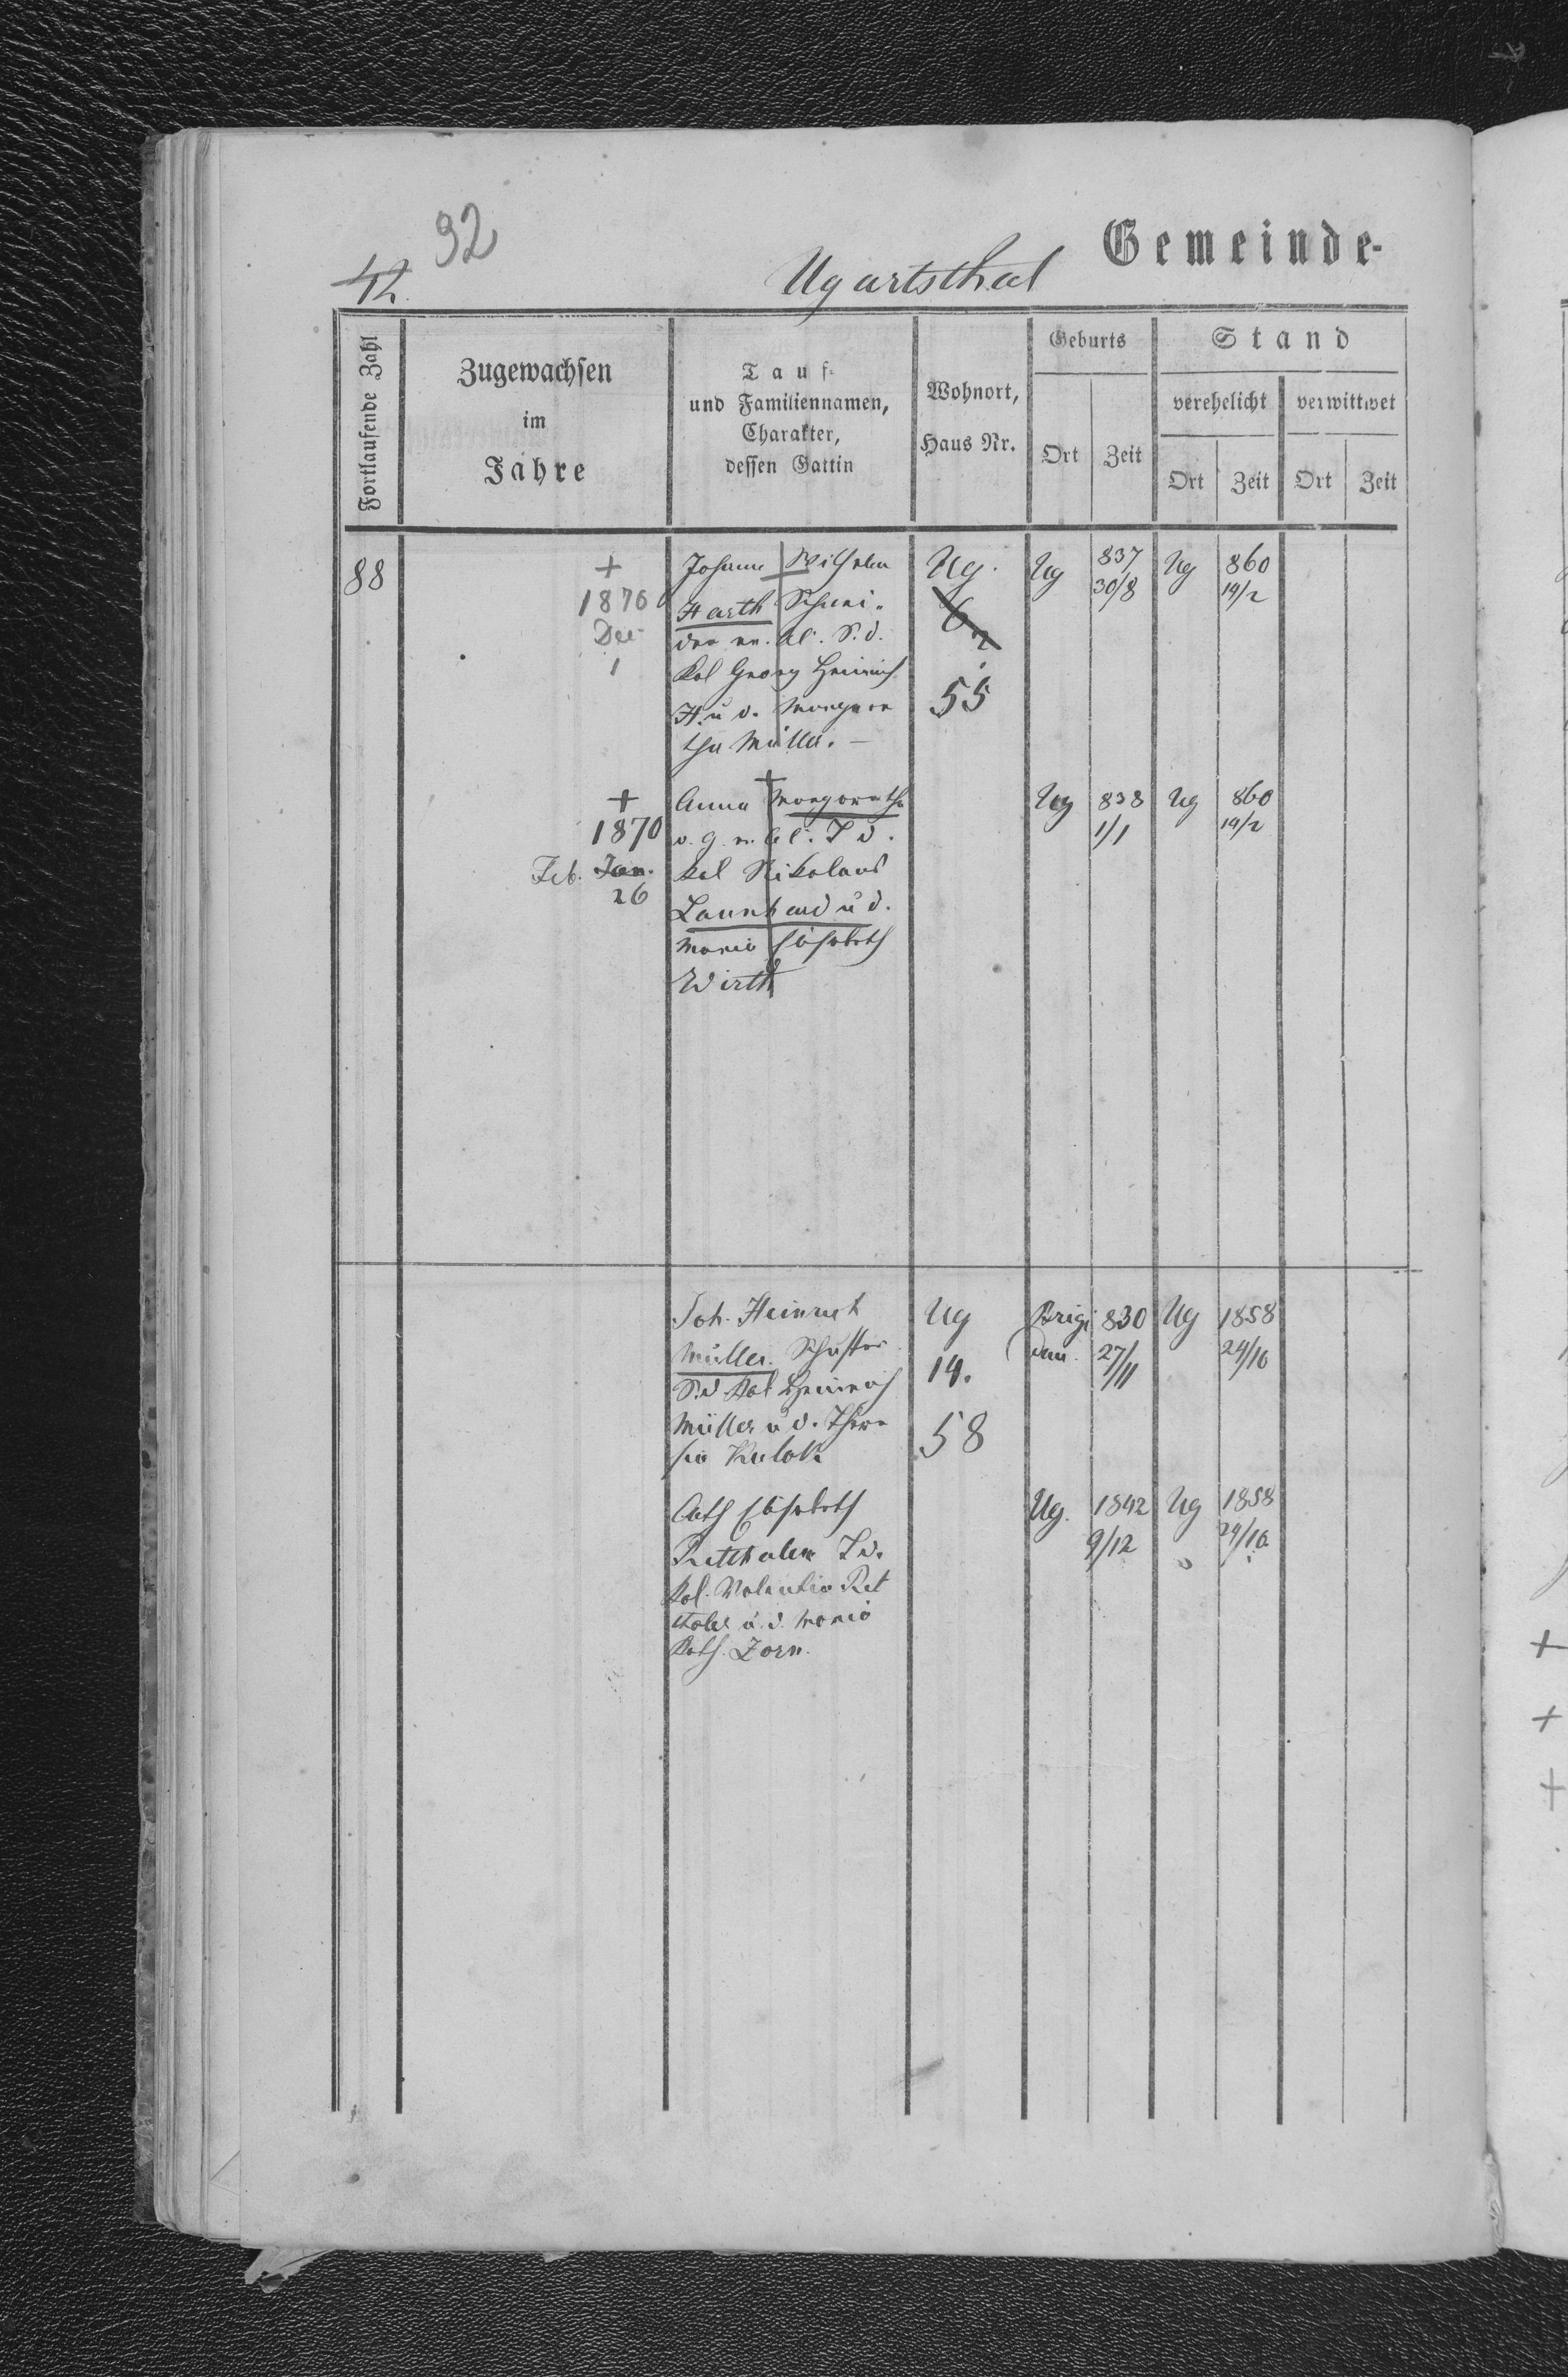 92
42.
Ugartsthal
Gemeinde-
Fortlaufende Zahl
Zugewachsen
im
Jahre
Tauf-
und Familiennamen,
Charakter,
dessen Gattin
Wohnort,
Haus Nr.
Geburts
Ort
Zeit
Stand
verehelicht
Ort
Zeit
verwittwet
Ort
Zeit
88
+
1876
Dec
1
Johann Wilhelm
Harth Schnei-
der S. d.
Kol Georg Heinrich
H. u d. Margare
tha Müller. —
Ug.
55
Ug
837
30/8
Ug
860
19/2
+
1870
Feb. Jan.
26
Anna Margaretha
T d.
Kol Nikolaus
Launhard u d.
Maria Elisabeth
Wirth
Ug
838
1/1
Ug
860
19/2
Joh. Heinrich
Müller. Schuster
S. d Kol Heinrich
Müller u d. There
sia Kulok
Ug
14.
58
Brigi
dau.
830
27/11
Ug
1858
24/10
Cath Elisabeth
T d.
Kol. Valentin Ret
u. d. Maria
Kath. Zorn.
Ug.
1842
9/12
Ug
1858
24/10